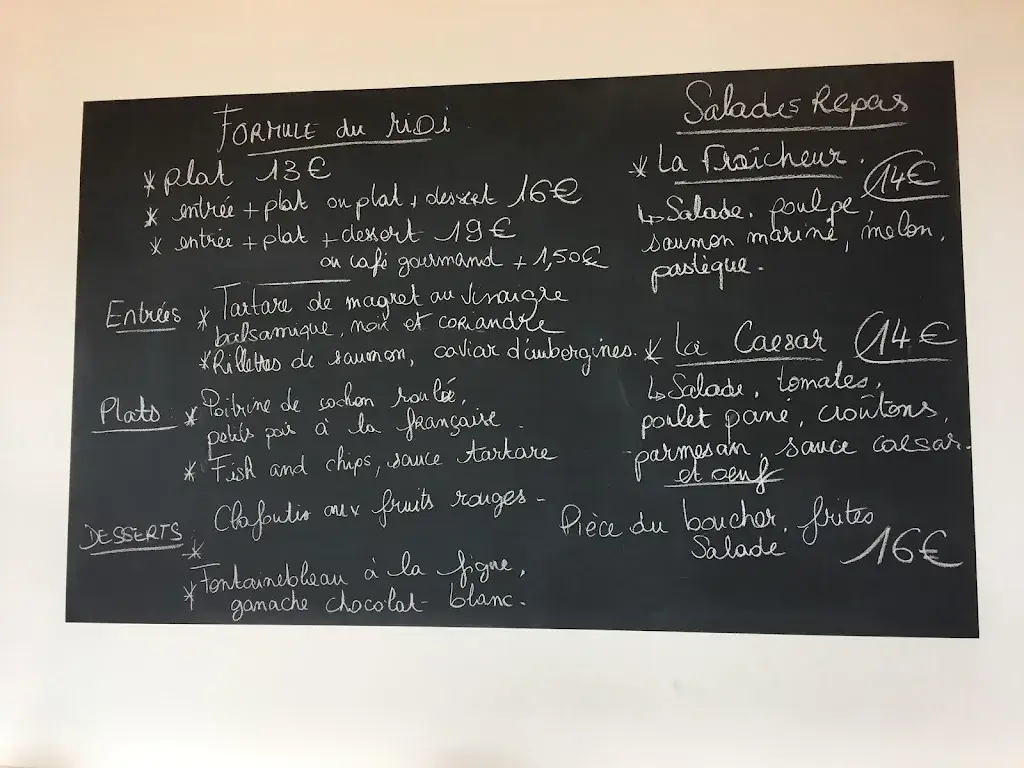 FORMULE du MIDI
* plat 13€
* entrée + plat ou plat + dessert 16€
* entrée + plat + dessert 19€
ou café gourmand + 1,50€
Entrées * Tartare de magret au vinaigre
balsamique, noix et coriandre
* Rillettes de saumon, caviar d'aubergines.
Plats : * Poitrine de cochon roulée,
petits pois à la française.
* Fish and chips, sauce tartare
DESSERTS * Clafoutis aux fruits rouges -
* Fontainebleau à la figue,
ganache chocolat blanc.
Salades Repas
* La Fraîcheur. 14€
↳ Salade, poulpe,
saumon mariné, melon,
pastèque.
* La Caesar 14€
↳ Salade, tomates,
poulet pané, croûtons,
parmesan, sauce caesar
et oeuf
Pièce du boucher, frites
Salade 16€